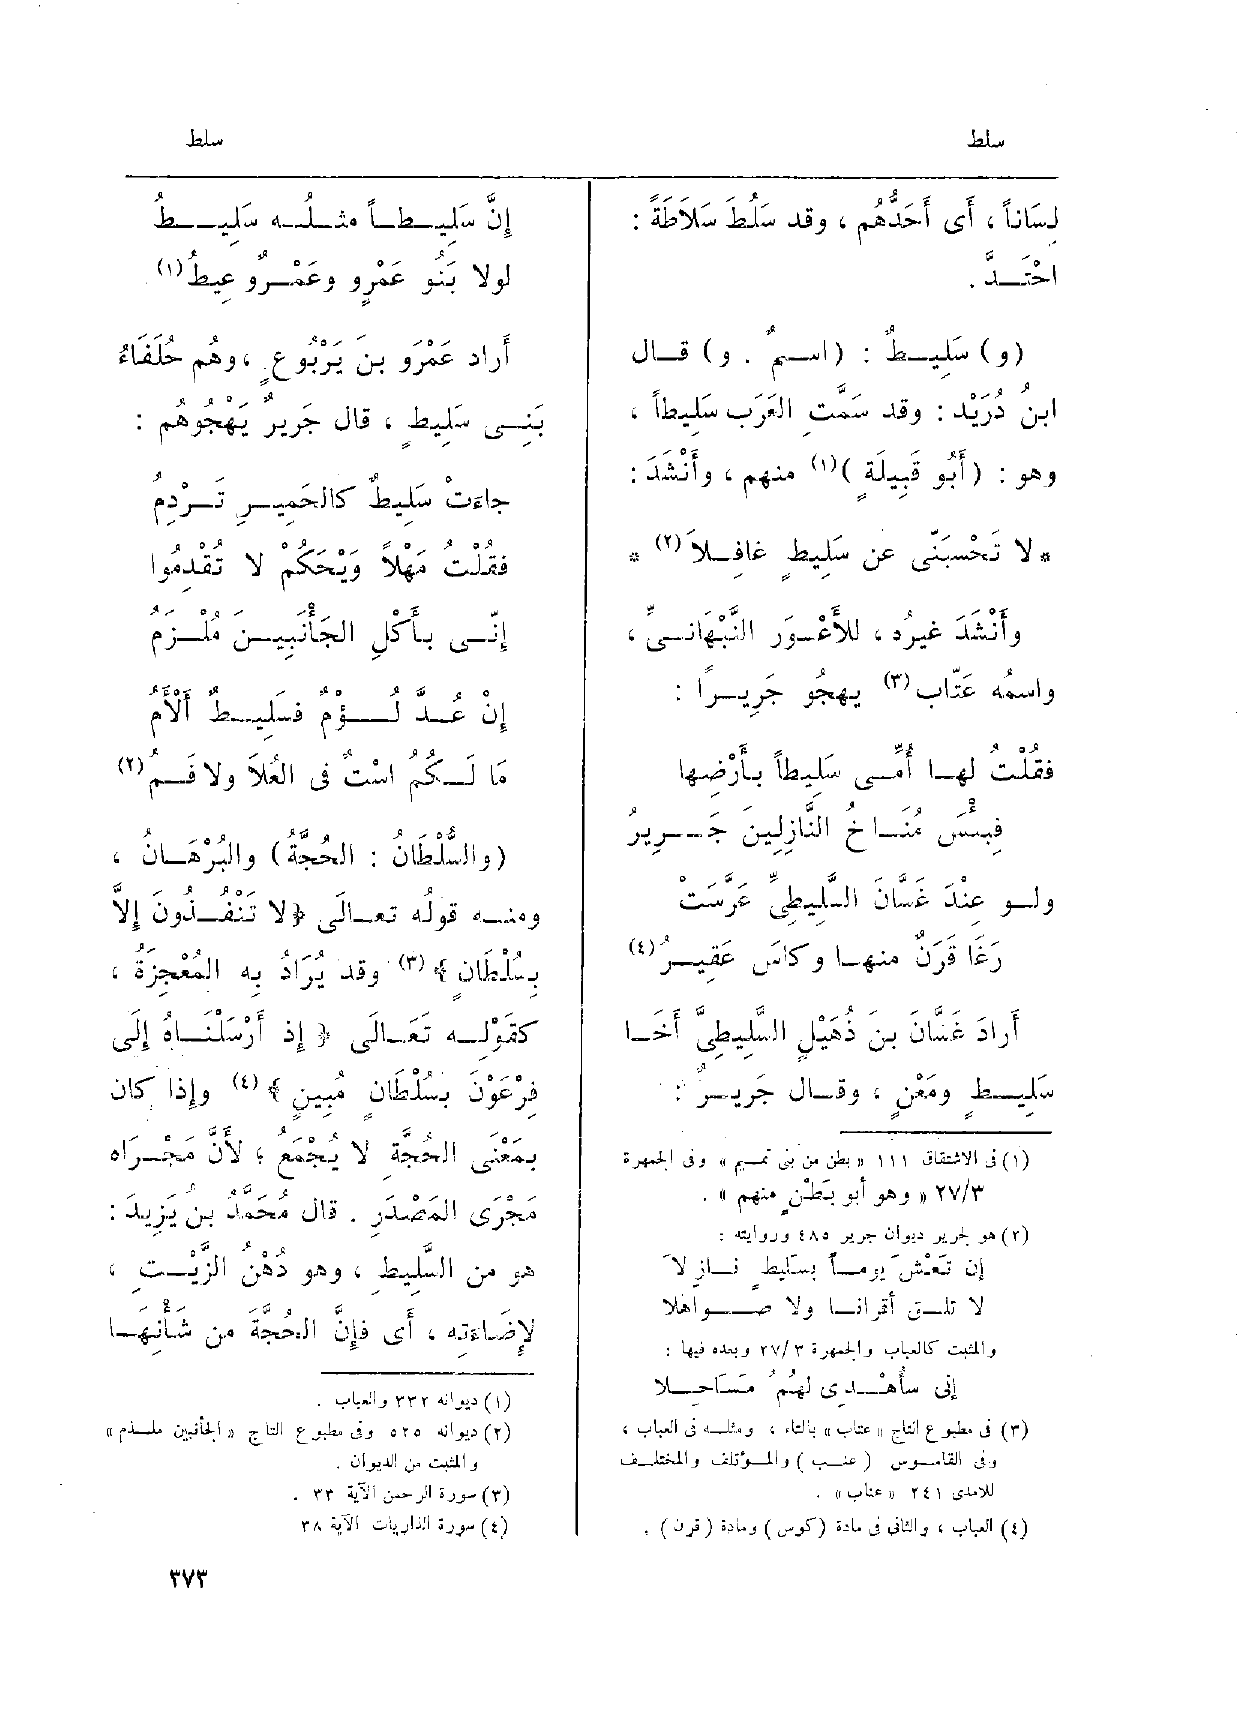 سلط
سلط
لِسَاناً ، أَى أَحَدُّهُم ، وقد سَلُطَ سَلاَطَةً :
احْتَــدَّ .
(و) سَلِيــطٌ : (اســمٌ . و) قــال
ابنُ دُرَيْد : وقد سَمَّت العَرَب سَلِيطاً ،
وهو : (أَبُو قَبِيلَةٍ )(١) منهم ، وأَنْشَدَ :
* لا تَحْسَبَنِّى عن سَلِيطٍ غافِــلاَ(٢) *
وأَنْشَدَ غيرُه ، للأَعْــوَر النَّبْهانــىِّ ،
واسمُه عَتّاب(٣) يهجُو جَرِيــرًا :
فقُلْتُ لهــا أُمِّــى سَلِيطاً بــأَرْضِها
فبِئْسَ مُنَــاخُ النَّازِلِينَ جَــرِيرُ
ولــو عِنْدَ غَسَّانَ السَّلِيطِىِّ عَرَّسَتْ
رَغَا قَرَنٌ منهــا وكاسَ عَقِيــرُ(٤)
أَرادَ غَسَّانَ بنَ ذُهَيْلٍ السَّلِيطِىَّ أَخَــا
سَلِيــطٍ ومَعْنٍ ، وقــال جَرِيــرٌ :
(١) فى الاشتقاق ١١١ « بطن من بنى تمــيم » وفى الجمهرة
٢٧/٣ « وهو أبو بَطْنٍ منهم » .
(٢) هو لجرير ديوان جرير ٤٨٥ وروايته :
إن تَغْش يومــاً بسَلِيطٍ نــازلاَ
لا تلــق أقرانــا ولا صــــواهلا
والمثبت كالعباب والجمهرة ٢٧/٣ وبعده فيها :
إنى سأهْــدِى لهُمُ مَسَاحِــلا
(٣) فى مطبوع التاج « عتاب » بالتاء ، ومثلــه فى العباب ،
وفى القامــوس ( عنــب ) والمــؤتلف والمختلــف
للآمدى ٢٤١ « عناب » .
(٤) العباب ، والثانى فى مادة (كوس) ومادة (قرن) .
إِنَّ سَلِيــطــاً مثــلُــه سَلِيــــطُ
لولا بَنُو عَمْرٍو وعَمْــرٌو عِيطُ(١)
أَراد عَمْرَو بنَ يَرْبُوعٍ ، وهُم حُلَفَاءُ
بَنِــى سَلِيطٍ ، قال جَرِيرٌ يَهْجُوهُم :
جاءَتْ سَلِيطٌ كالحَمِيــرِ تَــرْدِمُ
فقُلْتُ مَهْلاً وَيْحَكُمْ لا تُقْدِمُوا
إِنِّــى بــأَكْلِ الجَأْنَبِيــنَ مُلْــزَمُ
إِنْ عُــدَّ لُــــؤْمٌ فسَلِيــطٌ أَلْأَمُ
مَا لَــكُمُ اسْتٌ فى العُلاَ ولا فَــمُ(٢)
(والسُّلْطَانُ : الحُجَّةُ) والبُرْهَــانُ ،
ومنــه قولُه تعــالَى ﴿ لا تَنْفُــذُونَ إِلاَّ
بِسُلْطَانٍ ﴾(٣) وقد يُرَادُ به المُعْجِزَةُ ،
كقَوْلِــه تَعَــالَى ﴿ إِذ أَرْسَلْنَــاهُ إِلَى
فِرْعَوْنَ بسُلْطَانٍ مُبِينٍ ﴾(٤) وإِذا كان
بمَعْنَى الحُجَّةِ لا يُجْمَعُ ، لأَنَّ مَجْــرَاه
مَجْرَى المَصْدَرِ . قال مُحَمَّدُ بنُ يَزِيدَ :
هو من السَّلِيطِ ، وهو دُهْنُ الزَّيْــتِ ،
لإِضَاءَتِه ، أَى فإِنَّ الحُجَّةَ من شأْنِهَــا
(١) ديوانه ٣٣٢ والعباب .
(٢) ديوانه ٥٢٥ وفى مطبوع التاج « الجأنبين ملــذم »
والمثبت من الديوان .
(٣) سورة الرحمن الآية ٣٣ .
(٤) سورة الذاريات الآية ٣٨
٣٧٣